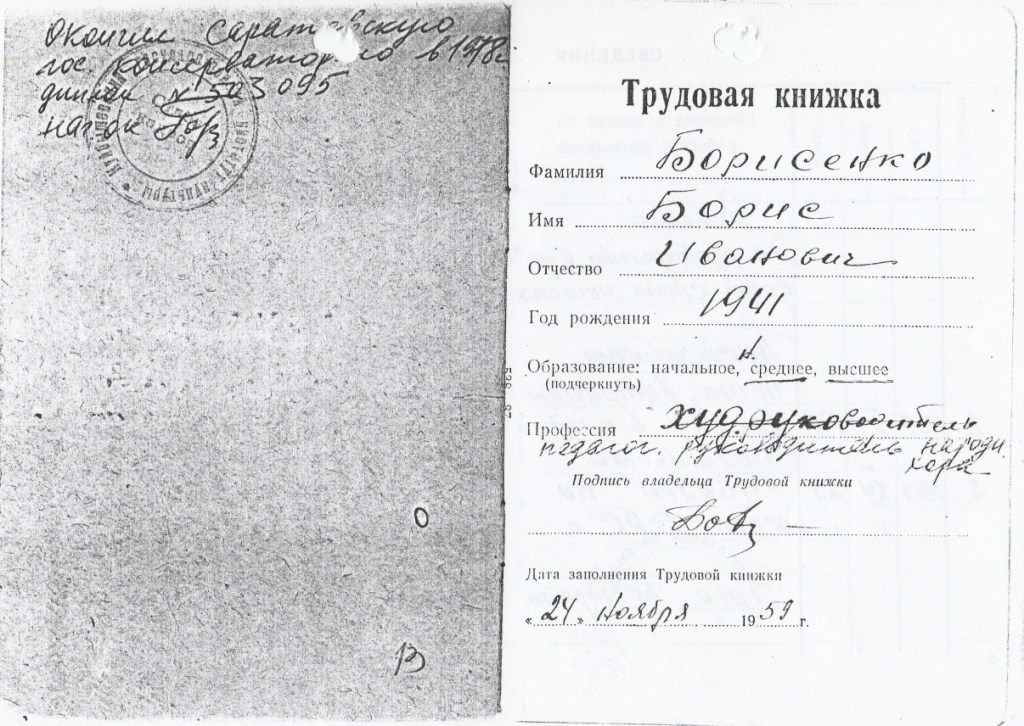 Окончил Саратовскую
гос. консерваторию в 1978г
диплом 503095
Трудовая книжка
Фамилия Борисенко
Имя Борис
Отчество Иванович
Год рождения 1941
Образование: начальное, среднее, высшее
(подчеркнуть)
Профессия худ. руководитель
педагог. руководитель народн.
хора
Подпись владельца Трудовой книжки
Дата заполнения Трудовой книжки
« 24 » ноября 1959 г.
0
13